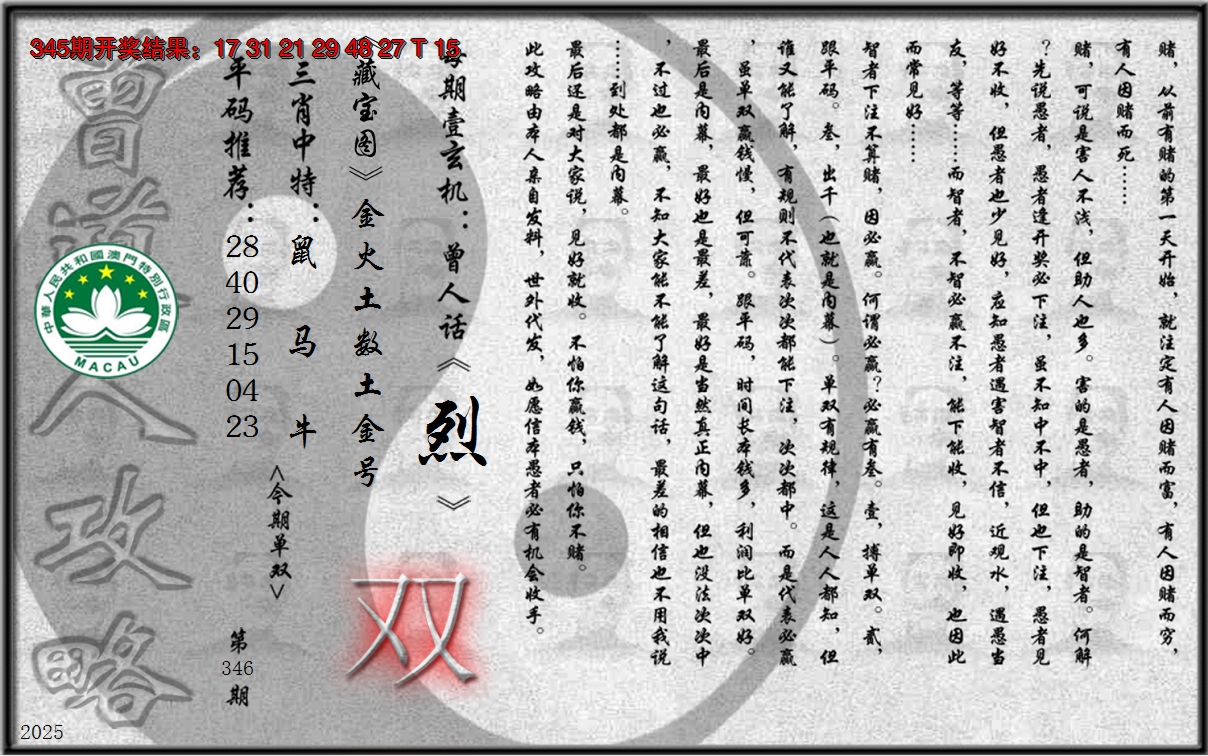 345期开奖结果：17 31 21 29 48 27 T 15
赌，从前有赌的第一天开始，就注定有人因赌而富，有人因赌而穷，
有人因赌而死……
赌，可说是害人不浅，但助人也多。害的是愚者，助的是智者。何解
？先说愚者，愚者逢开奖必下注，虽不知中不中，但也下注，愚者见
好不收，但愚者也少见好，应知愚者遇害智者不信，近观水，遇愚当
友，等等……而智者，不智必赢不注，能下能收，见好即收，也因此
而常见好……
智者下注不算赌，因必赢。何谓必赢？必赢有叁。壹，搏单双。贰，
跟平码。叁，出千（也就是内幕）。单双有规律，这是人人都知，但
谁又能了解，有规则不代表次次都能下注，次次都中。而是代表必赢
，虽单双赢钱慢，但可靠。跟平码，时间长本钱多，利润比单双好。
最后是内幕，最好也是最差，最好是当然真正内幕，但也没法次次中
，不过也必赢，不知大家能不能了解这句话，最差的相信也不用我说
……到处都是内幕。
最后还是对大家说，见好就收。不怕你赢钱，只怕你不赌。
此攻略由本人亲自发料，世外代发，如愿信本愚者必有机会收手。
每期壹玄机：曾人话《烈》
《藏宝图》金火土数土金号
三肖中特：鼠 马 牛
<今期单双>
双
平码推荐：
28
40
29
15
04
23
第
346
期
曾道人攻略
中華人民共和國澳門特別行政區
MACAU
2025